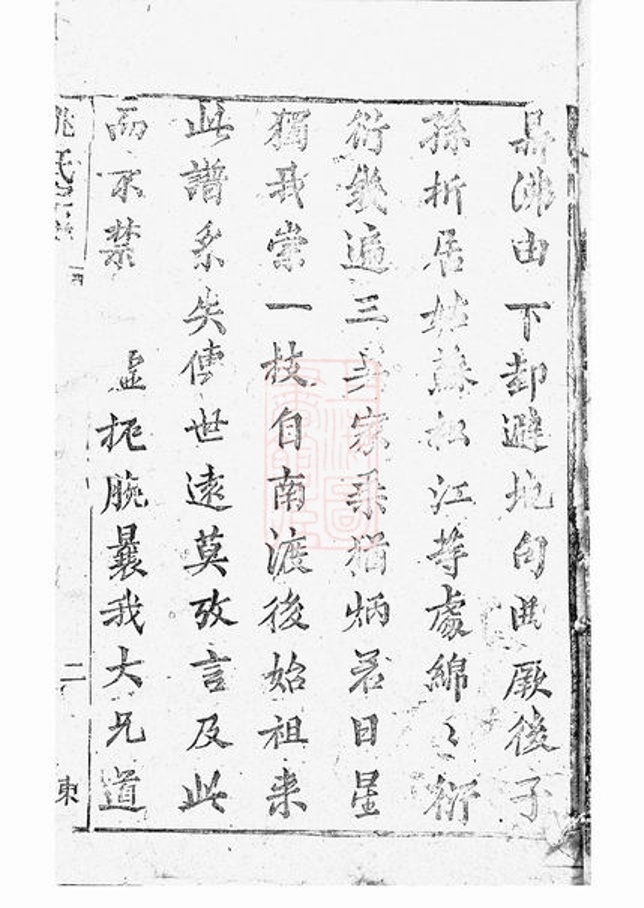 鼎沸由下却避地句曲厥後子
孫折居姑蘇松江等處綿〻衍
衍幾遍三吳家乘猶炳若日星
獨我崇一枝自南渡後始祖来
此譜系失傳世遠莫攷言及此
而不禁 虛扼腕曩我大兄道
姚氏家乘
二
東